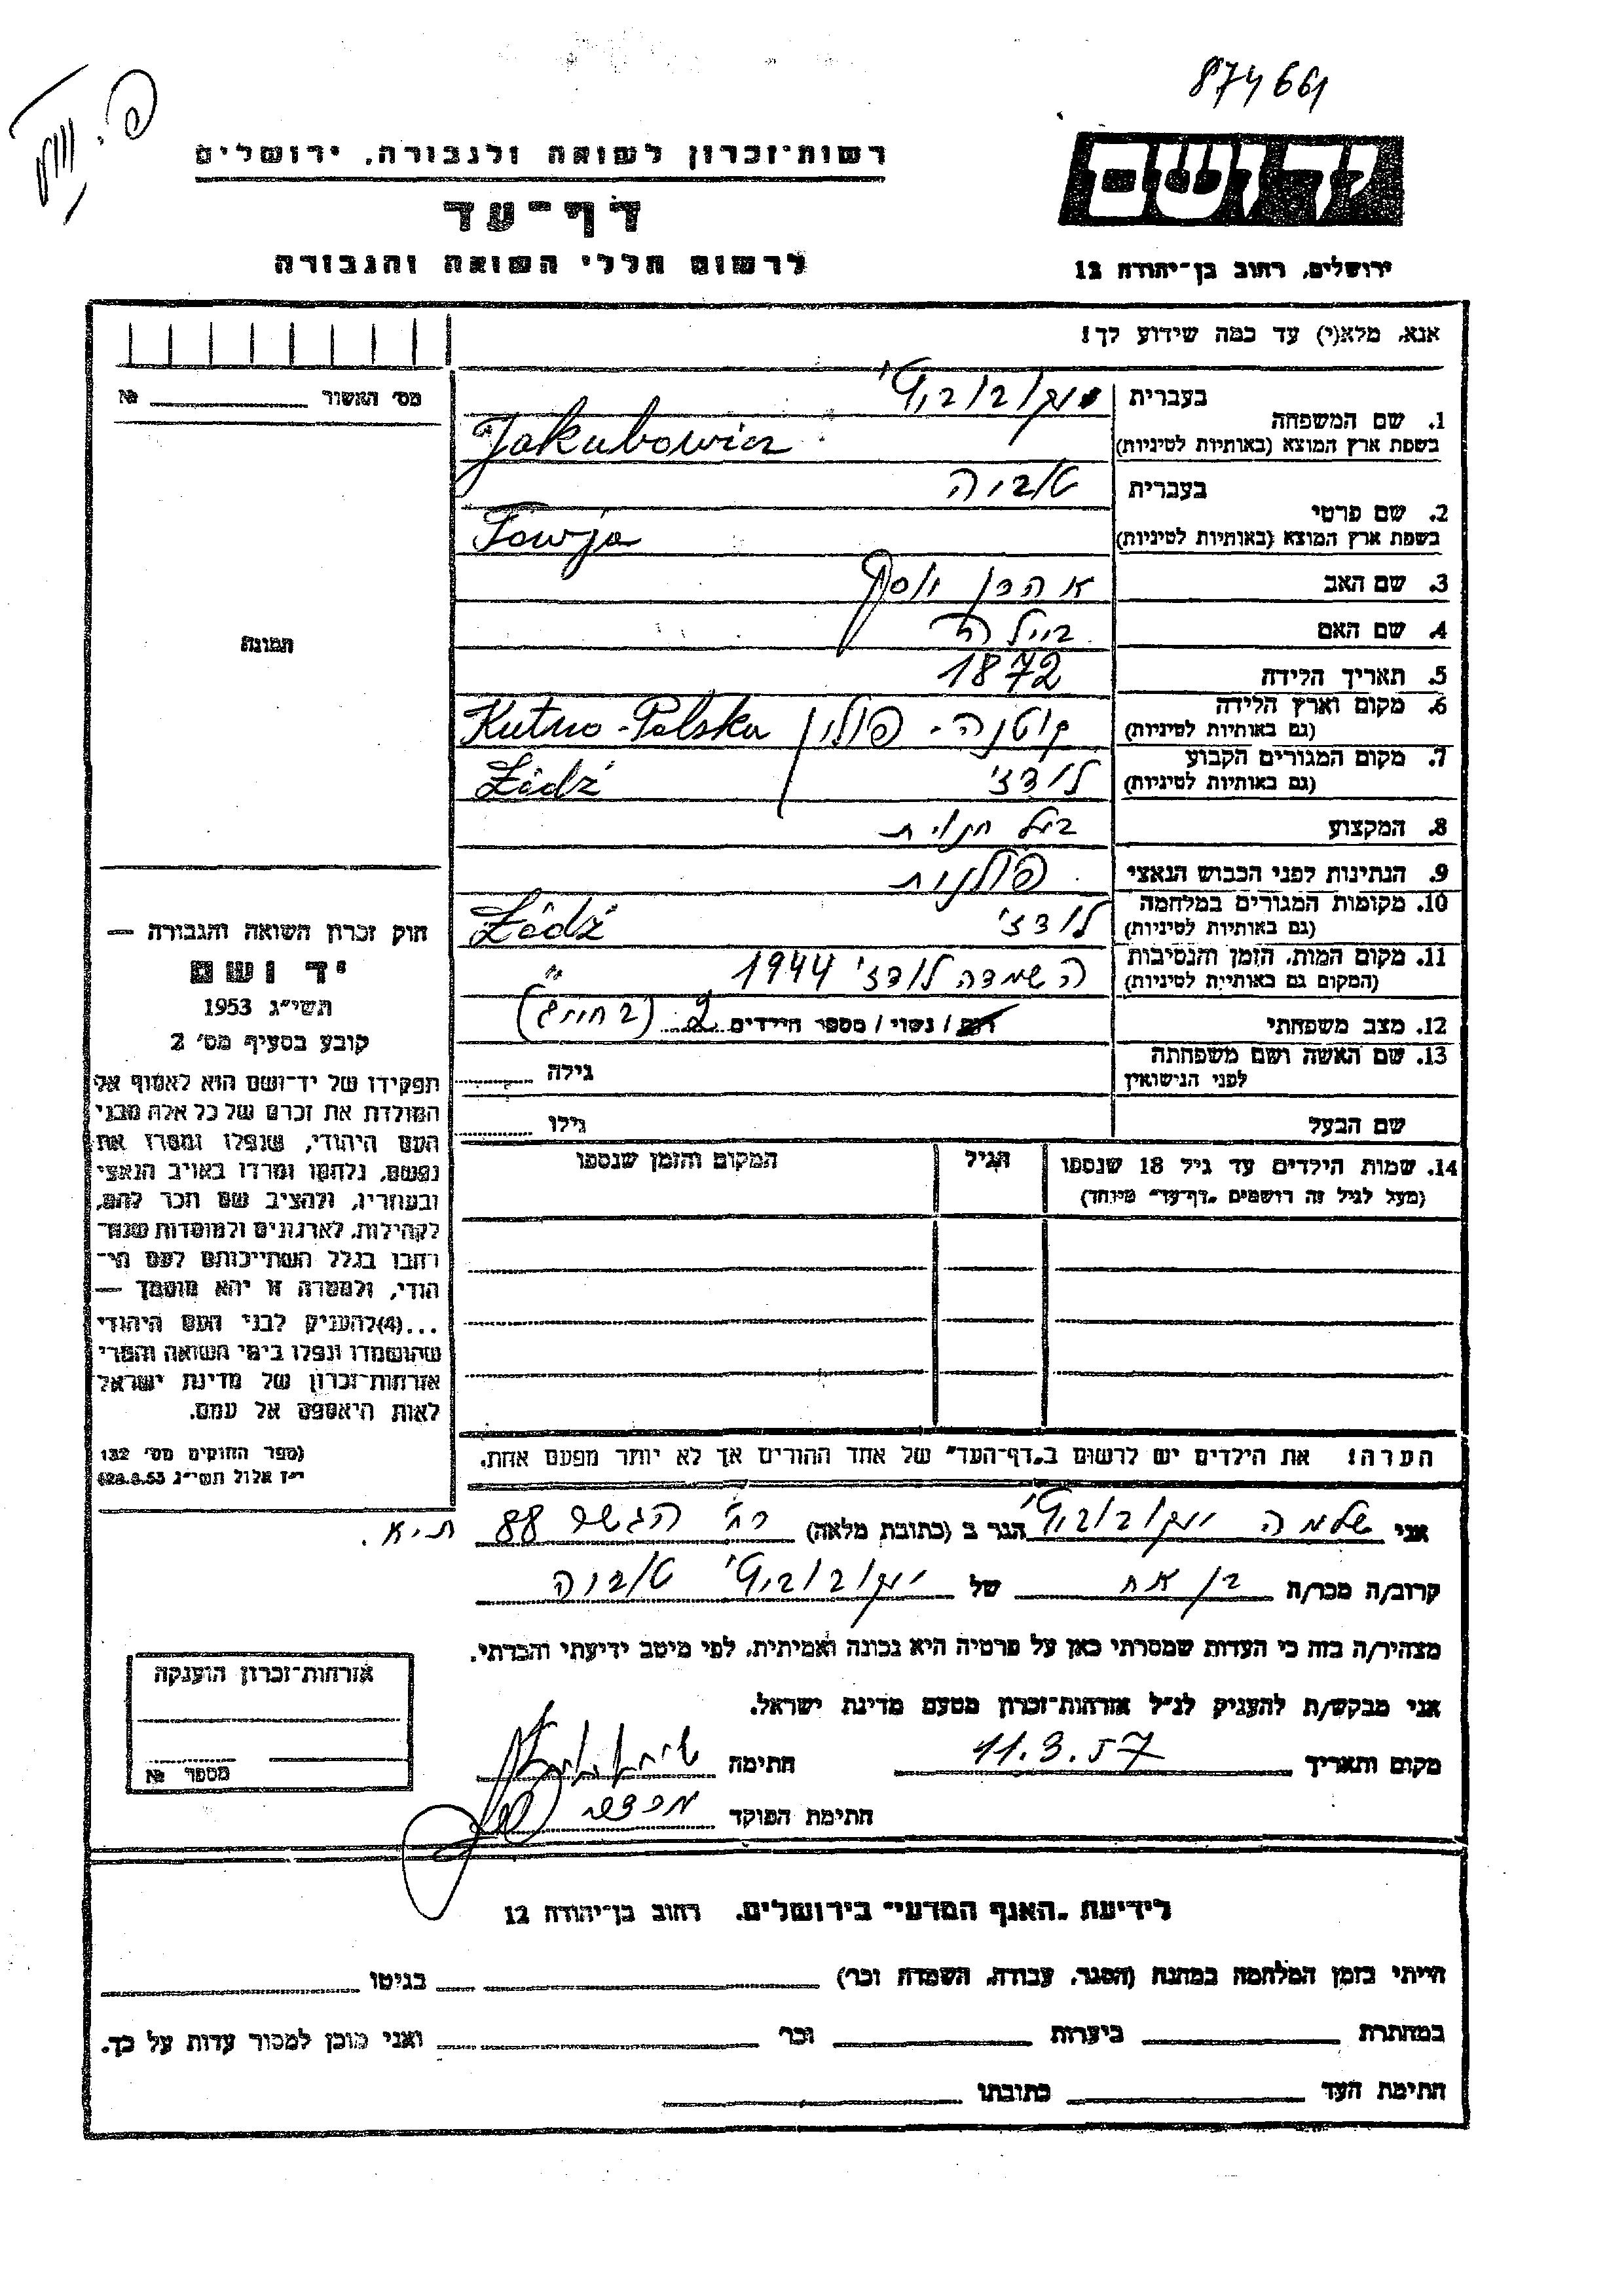 874661
רשות־זכרון לשואה ולגבורה, ירושלים
דף־עד
לרשום חללי השואה והגבורה
יד ושם
ירושלים, רחוב בן־יהודה 12
אנא, מלא(י) עד כמה שידוע לך!
מס׳ האשור №
תמונה
1. שם המשפחה בעברית יעקובוביץ׳
בשפת ארץ המוצא (באותיות לטיניות) Jakubowicz
2. שם פרטי בעברית טוביה
בשפת ארץ המוצא (באותיות לטיניות) Towja
3. שם האב אהרן יוסף
4. שם האם ביילה
5. תאריך הלידה 1872
6. מקום וארץ הלידה קוטנה - פולין Kutno - Polska
(גם באותיות לטיניות)
7. מקום המגורים הקבוע לודז׳ Łódź
(גם באותיות לטיניות)
8. המקצוע בעל חנות
9. הנתינות לפני הכבוש הנאצי פולנית
10. מקומות המגורים במלחמה לודז׳ Łódź
(גם באותיות לטיניות)
11. מקום המות, הזמן והנסיבות השמדה לודז׳ 1944
(המקום גם באותיות לטיניות)
12. מצב משפחתי רווק / נשוי / מספר הילדים 2
13. שם האשה ושם משפחתה גילה
לפני הנישואין
שם הבעל גילו
14. שמות הילדים עד גיל 18 שנספו הגיל המקום והזמן שנספו
(מעל לגיל זה רושמים „דף־עד״ מיוחד)
הערה! את הילדים יש לרשום ב„דף־העד״ של אחד ההורים אך לא יותר מפעם אחת.
חוק זכרון השואה והגבורה —
יד ושם
תשי״ג 1953
קובע בסעיף מס׳ 2
תפקידו של יד־ושם הוא לאסוף אל
המולדת את זכרם של כל אלה מבני
העם היהודי, שנפלו ומסרו את
נפשם, נלחמו ומרדו באויב הנאצי
ובעוזריו, ולהציב שם וזכר להם,
לקהילות, לארגונים ולמוסדות שנח־
רבו בגלל השתייכותם לעם הי־
הודי, ולמטרה זו יהא מוסמך —
...(4) להעניק לבני העם היהודי
שהושמדו ונפלו בימי השואה והמרי
אזרחות־זכרון של מדינת ישראל
לאות היאספם אל עמם.
(ספר החוקים מס׳ 132
י״ז אלול תשי״ג 28.8.53)
אני שלמה יעקובוביץ׳ הגר ב (כתובת מלאה) רח׳ הגשר 88 ת״א.
קרוב/ה מכר/ה בן אח של יעקובוביץ׳ טוביה
מצהיר/ה בזה כי העדות שמסרתי כאן על פרטיה היא נכונה ואמיתית, לפי מיטב ידיעתי והכרתי.
אני מבקש/ת להעניק לנ״ל אזרחות־זכרון מטעם מדינת ישראל.
מקום ותאריך 11.3.57 חתימה
חתימת הפוקד
אזרחות־זכרון הוענקה
מספר №
לידיעת „האגף המדעי״ בירושלים, רחוב בן־יהודה 12
הייתי בזמן המלחמה במחנה (הסגר, עבודה, השמדה וכו׳) בגיטו
במחתרת ביערות וכו׳ ואני מוכן למסור עדות על כך.
חתימת העד כתובתו